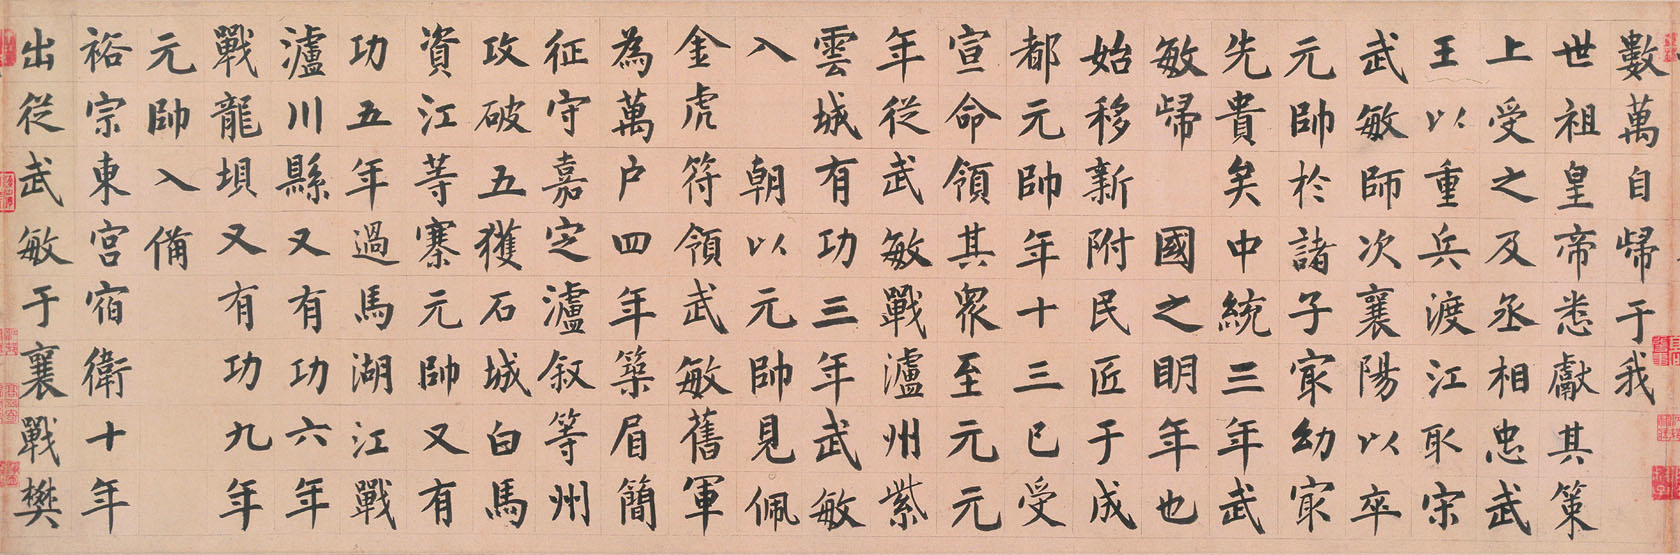 數萬自歸于我
世祖皇帝悉獻其策
上受之及丞相忠武
王以重兵渡江取宋
武敏師次襄陽以卒
元帥於諸子冣幼冣
先貴矣中統三年武
敏歸 國之明年也
始移新附民匠于成
都元帥年十三已受
宣命領其衆至元元
年從武敏戰瀘州紫
雲城有功三年武敏
入 朝以元帥見佩
金虎符領武敏舊軍
為萬户四年築眉簡
征守嘉定瀘叙等州
攻破五獲石城白馬
資江等寨元帥又有
功五年過馬湖江戰
瀘川縣又有功六年
戰龍垻又有功九年
元帥入備
裕宗東宮宿衛十年
出從武敏于襄戰樊